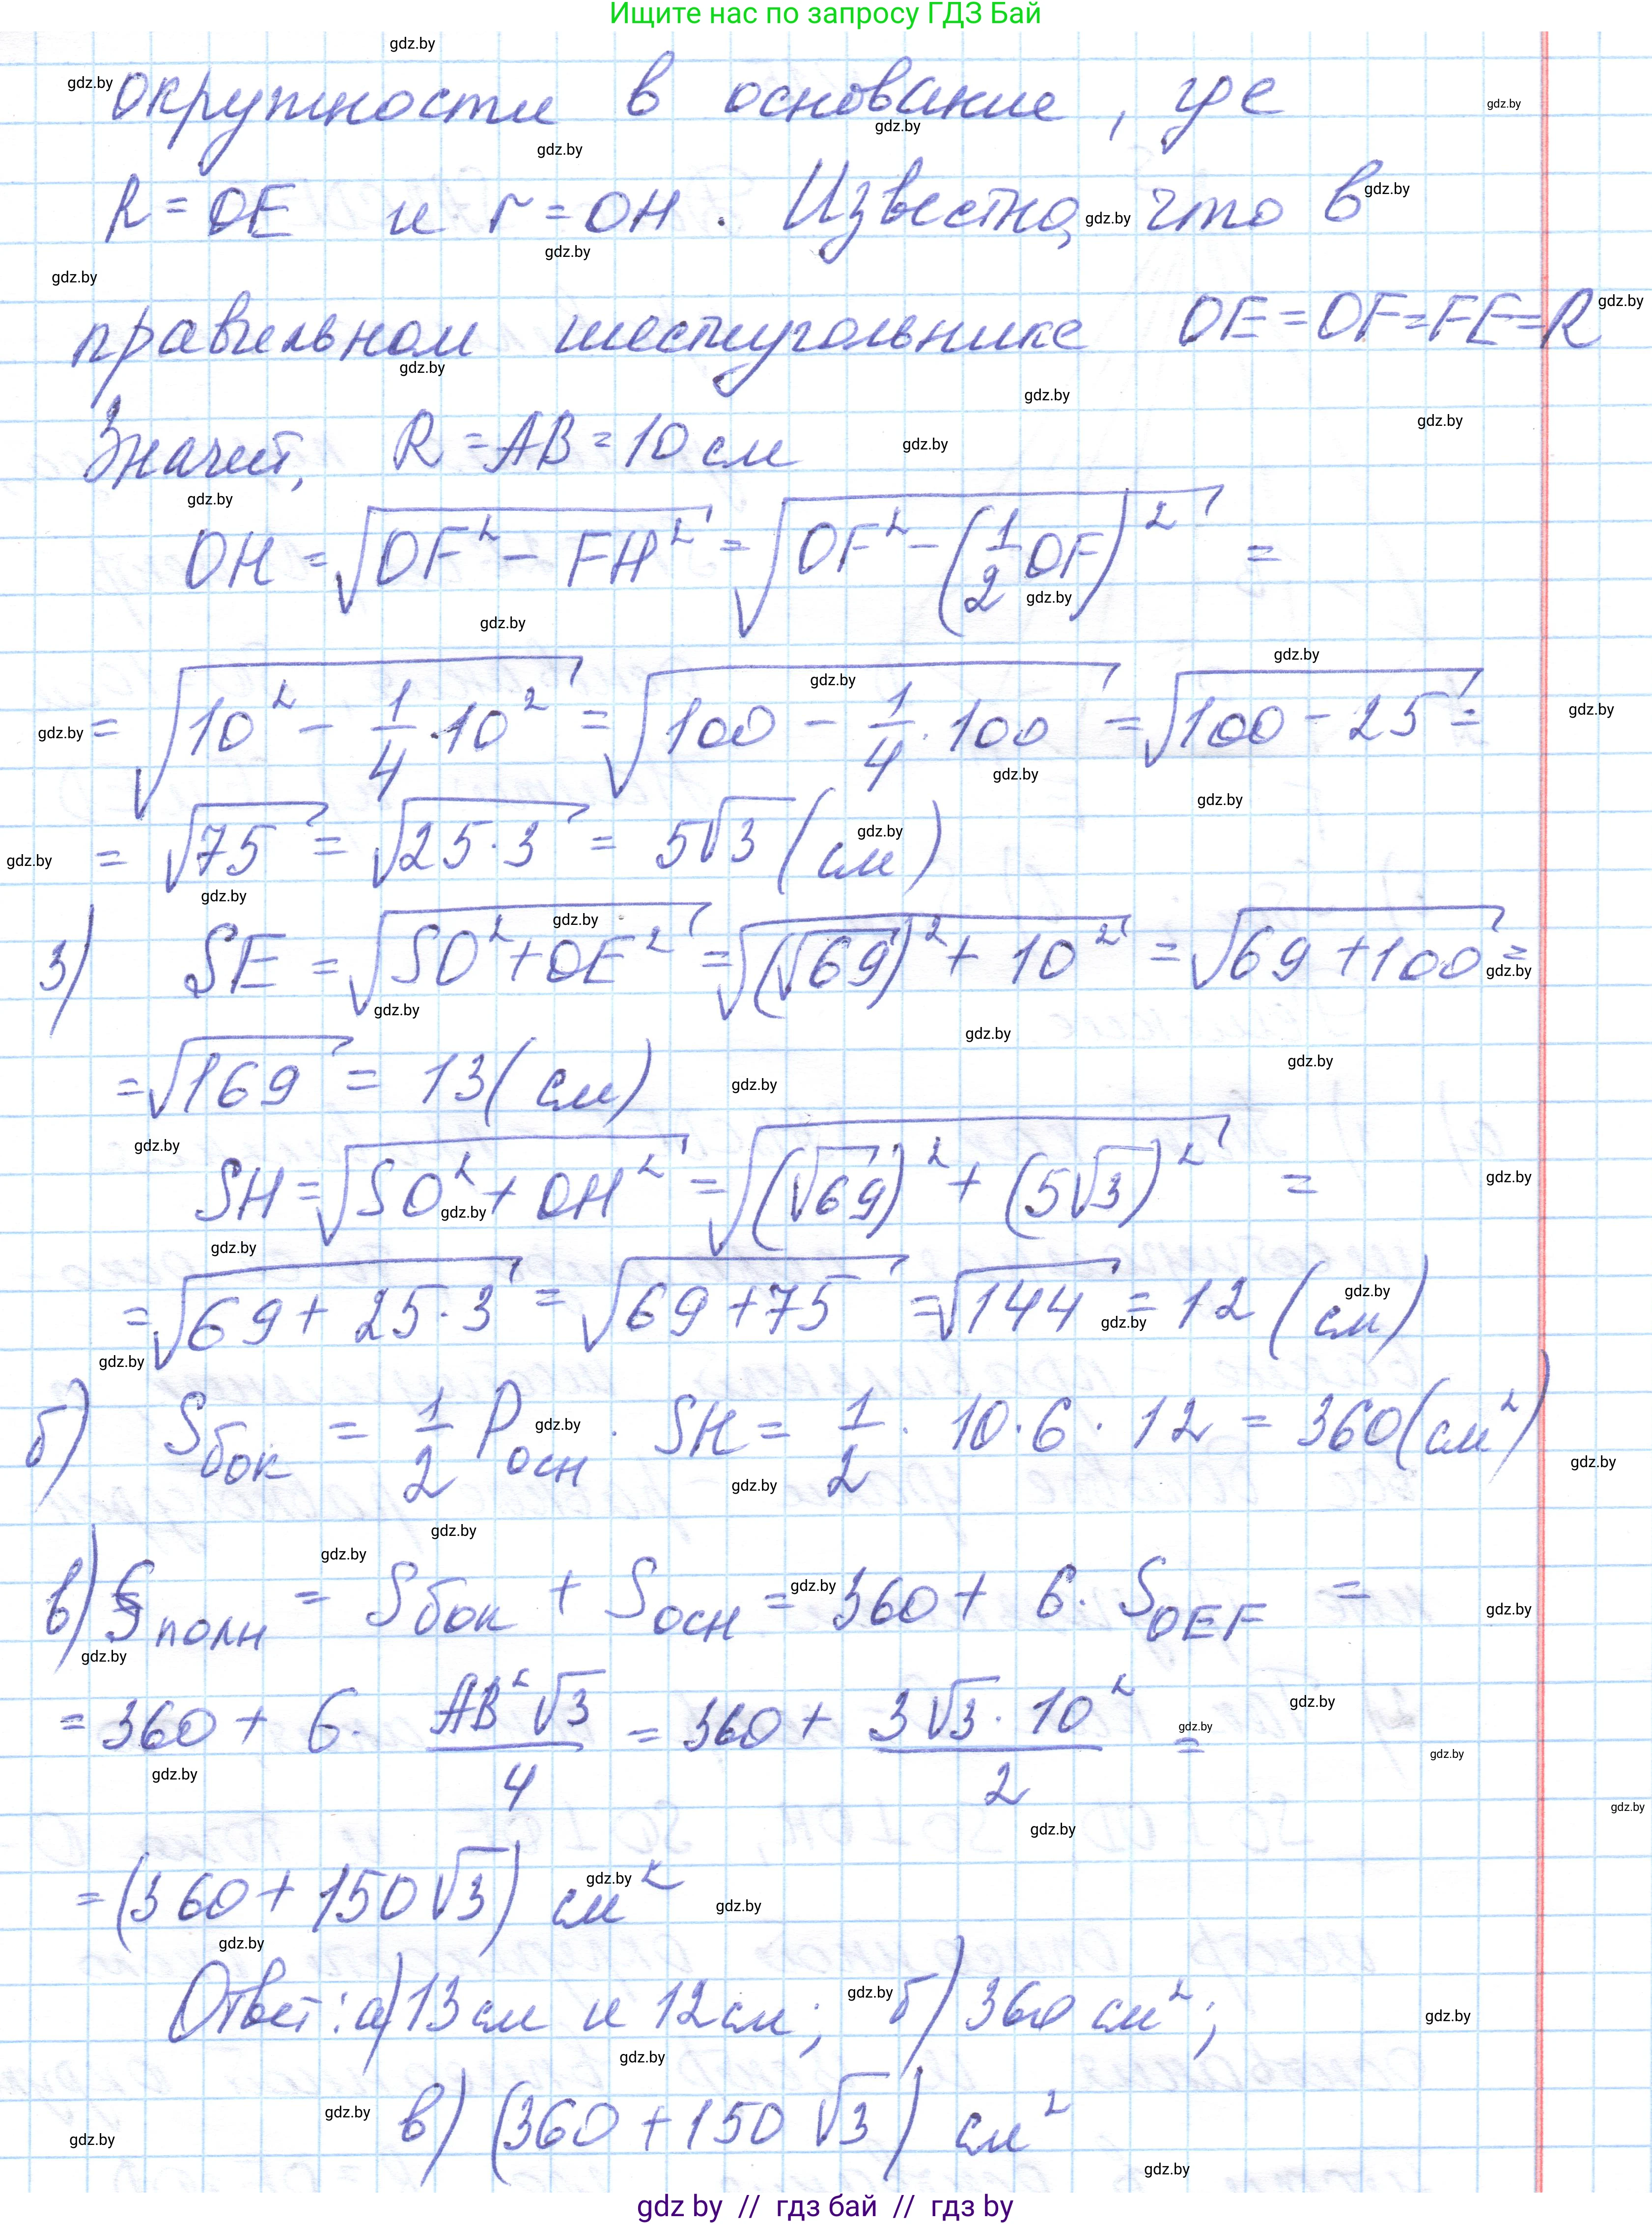 Ищите нас по запросу ГДЗ Бай
окружности в основание, где
R = OE и r = OH. Известно, что в
правильном шестиугольнике OE = OF = FE = R
Значит, R = AB = 10 см
OH = √(OF² − FH²) = √(OF² − (1/2 OF)²) =
= √(10² − 1/4 · 10²) = √(100 − 1/4 · 100) = √(100 − 25) =
= √75 = √(25·3) = 5√3 (см)
3) SE = √(SO² + OE²) = √((√69)² + 10²) = √(69 + 100) =
= √169 = 13 (см)
SH = √(SO² + OH²) = √((√69)² + (5√3)²) =
= √(69 + 25·3) = √(69 + 75) = √144 = 12 (см)
б) Sбок = 1/2 Pосн · SH = 1/2 · 10·6·12 = 360 (см²)
в) Sполн = Sбок + Sосн = 360 + 6· S_OEF =
= 360 + 6· AB²√3/4 = 360 + 3√3·10²/2 =
= (360 + 150√3) см²
Ответ: а) 13 см и 12 см; б) 360 см²;
в) (360 + 150√3) см²
gdz by // гдз бай // гдз by